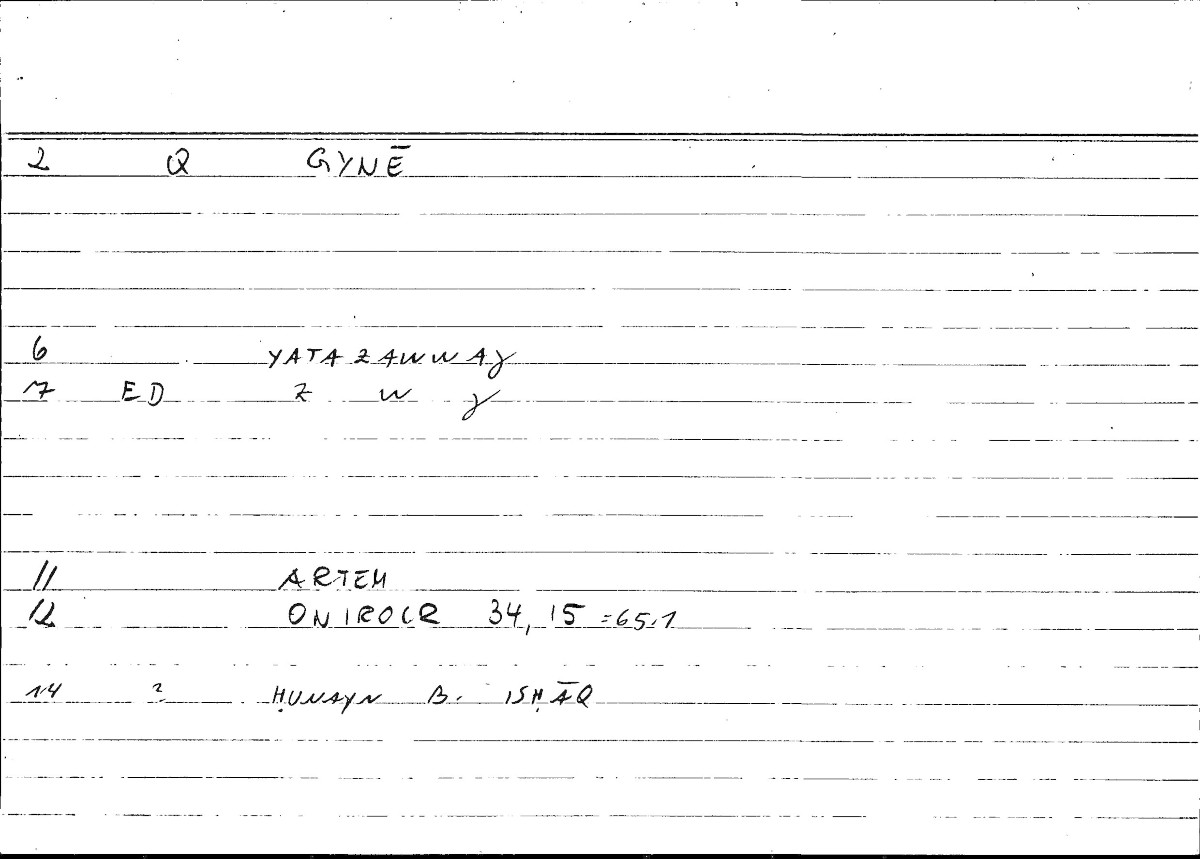 2 Q GYNĒ
6 YATAZAWWAǦ
7 ED Z W Ǧ
11 ARTEM
12 ONIROCR 34, 15 =65.1
14 ? ḤUNAYN B. ISḤĀQ